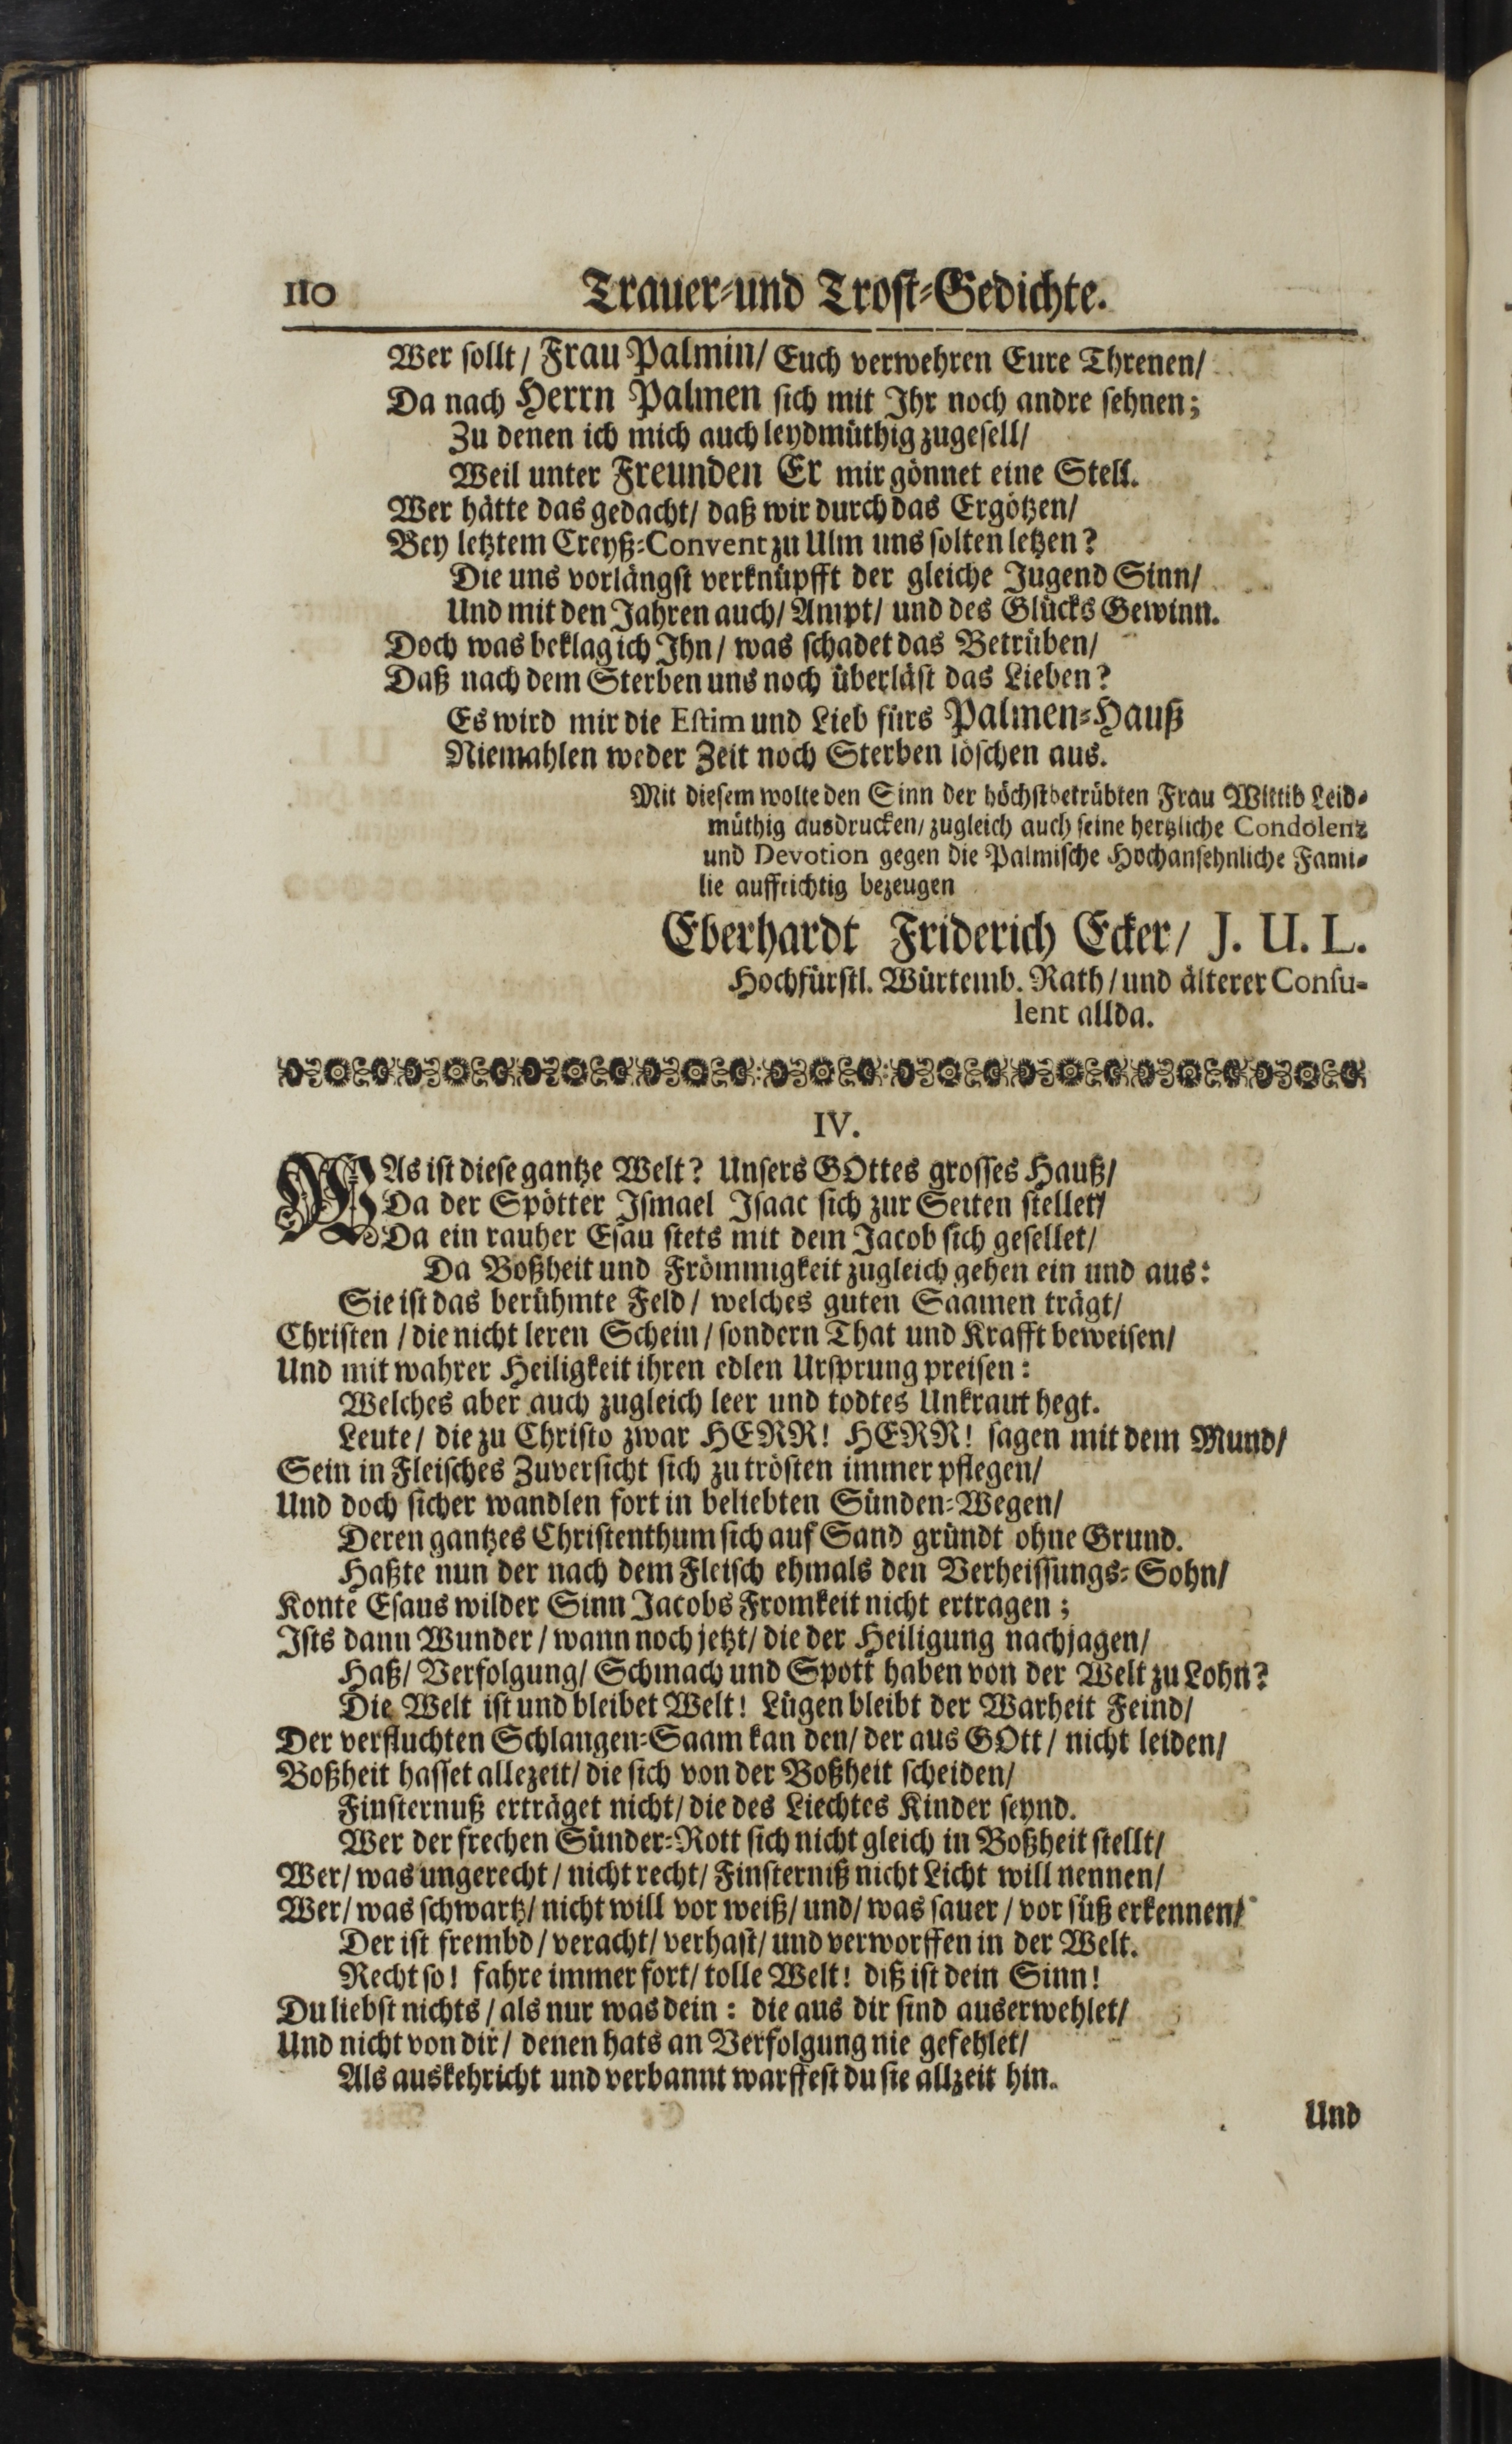 110
Trauer-und Trost-Gedichte.
Wer sollt / Frau Palmin / Euch verwehren Eure Threnen /
Da nach Herrn Palmen sich mit Ihr noch andre sehnen;
Zu denen ich mich auch leydmüthig zugesell /
Weil unter Freunden Er mir gönnet eine Stell.
Wer hätte das gedacht / daß wir durch das Ergötzen /
Bey letztem Creyß-Convent zu Ulm uns solten letzen?
Die uns vorlängst verknüpfft der gleiche Jugend Sinn /
Und mit den Jahren auch / Ampt / und des Glücks Gewinn.
Doch was beklag ich Ihn / was schadet das Betrüben /
Daß nach dem Sterben uns noch überläst das Lieben?
Es wird mir die Estim und Lieb fürs Palmen-Hauß
Niemahlen weder Zeit noch Sterben löschen aus.
Mit diesem wolte den Sinn der höchstbetrübten Frau Wittib Leid-
müthig ausdrucken / zugleich auch seine hertzliche Condolentz
und Devotion gegen die Palmische Hochansehnliche Fami-
lie auffrichtig bezeugen
Eberhardt Friderich Ecker / J. U. L.
Hochfürstl. Würtemb. Rath / und älterer Consu-
lent allda.
IV.
WAs ist diese gantze Welt? Unsers GOttes grosses Hauß /
Da der Spötter Ismael Isaac sich zur Seiten stellet /
Da ein rauher Esau stets mit dem Jacob sich gesellet /
Da Boßheit und Frömmigkeit zugleich gehen ein und aus:
Sie ist das berühmte Feld / welches guten Saamen trägt /
Christen / die nicht leren Schein / sondern That und Krafft beweisen /
Und mit wahrer Heiligkeit ihren edlen Ursprung preisen:
Welches aber auch zugleich leer und todtes Unkraut hegt.
Leute / die zu Christo zwar HERR! HERR! sagen mit dem Mund /
Sein in Fleisches Zuversicht sich zu trösten immer pflegen /
Und doch sicher wandlen fort in beliebten Sünden-Wegen /
Deren gantzes Christenthum sich auf Sand gründt ohne Grund.
Haßte nun der nach dem Fleisch ehmals den Verheissungs-Sohn /
Konte Esaus wilder Sinn Jacobs Fromkeit nicht ertragen;
Ists dann Wunder / wann noch jetzt / die der Heiligung nachjagen /
Haß / Verfolgung / Schmach und Spott haben von der Welt zu Lohn?
Die Welt ist und bleibet Welt! Lügen bleibt der Warheit Feind /
Der verfluchten Schlangen-Saam kan den / der aus GOtt / nicht leiden /
Boßheit hasset allezeit / die sich von der Boßheit scheiden /
Finsternuß erträget nicht / die des Liechtes Kinder seynd.
Wer der frechen Sünder-Rott sich nicht gleich in Boßheit stellt /
Wer / was ungerecht / nicht recht / Finsterniß nicht Licht will nennen /
Wer / was schwartz / nicht will vor weiß / und / was sauer / vor süß erkennen /
Der ist frembd / veracht / verhast / und verworffen in der Welt.
Recht so! fahre immer fort / tolle Welt! diß ist dein Sinn!
Du liebst nichts / als nur was dein: die aus dir sind auserwehlet /
Und nicht von dir / denen hats an Verfolgung nie gefehlet /
Als auskehricht und verbannt warffest du sie allzeit hin.
Und